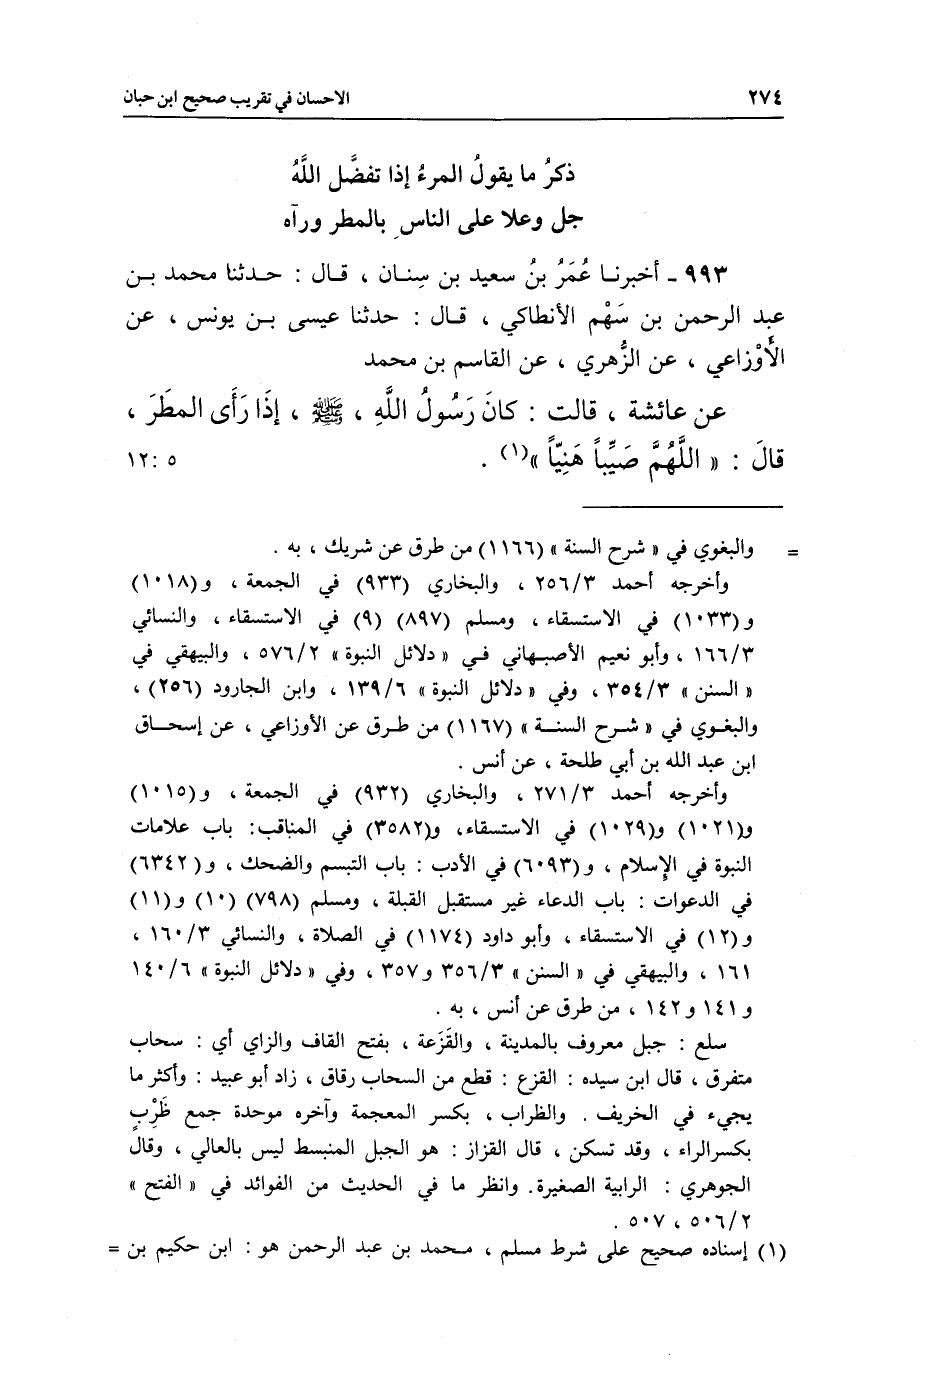 ٢٧٤ الاحسان في تقريب صحيح ابن حبان
ذكرُ ما يقولُ المرءُ إذا تفضَّل اللَّهُ
جل وعلا على الناسِ بالمطر ورآه
٩٩٣ ـ أخبرنا عُمَرُ بنُ سعيد بن سِنان ، قال : حدثنا محمد بن
عبد الرحمن بن سَهْم الأنطاكي ، قال : حدثنا عيسى بن يونس ، عن
الأَوْزاعي ، عن الزُّهري ، عن القاسم بن محمد
عن عائشة ، قالت : كانَ رَسُولُ اللَّهِ ، ﷺ ، إِذَا رَأَى المطَرَ ،
قالَ : « اللَّهُمَّ صَيِّباً هَنِيّاً »(١) . ٥ :١٢
= والبغوي في « شرح السنة » (١١٦٦) من طرق عن شريك ، به .
وأخرجه أحمد ٢٥٦/٣ ، والبخاري (٩٣٣) في الجمعة ، و(١٠١٨)
و(١٠٣٣) في الاستسقاء ، ومسلم (٨٩٧) (٩) في الاستسقاء ، والنسائي
١٦٦/٣ ، وأبو نعيم الأصبهاني في « دلائل النبوة » ٥٧٦/٢ ، والبيهقي في
« السنن » ٣٥٤/٣ ، وفي « دلائل النبوة » ١٣٩/٦ ، وابن الجارود (٢٥٦) ،
والبغوي في « شرح السنة » (١١٦٧) من طرق عن الأوزاعي ، عن إسحاق
ابن عبد الله بن أبي طلحة ، عن أنس .
وأخرجه أحمد ٢٧١/٣ ، والبخاري (٩٣٢) في الجمعة ، و(١٠١٥)
و(١٠٢١) و(١٠٢٩) في الاستسقاء، و(٣٥٨٢) في المناقب: باب علامات
النبوة في الإسلام ، و(٦٠٩٣) في الأدب : باب التبسم والضحك ، و(٦٣٤٢)
في الدعوات : باب الدعاء غير مستقبل القبلة ، ومسلم (٧٩٨) (١٠) و(١١)
و(١٢) في الاستسقاء ، وأبو داود (١١٧٤) في الصلاة ، والنسائي ١٦٠/٣ ،
١٦١ ، والبيهقي في « السنن » ٣٥٦/٣ و٣٥٧ ، وفي « دلائل النبوة » ١٤٠/٦
و١٤١ و١٤٢ ، من طرق عن أنس ، به .
سلع : جبل معروف بالمدينة ، والقَزَعة ، بفتح القاف والزاي أي : سحاب
متفرق ، قال ابن سيده : القزع : قطع من السحاب رقاق ، زاد أبو عبيد : وأكثر ما
يجيء في الخريف . والظراب ، بكسر المعجمة وآخره موحدة جمع ظَرْبٍ
بكسر الراء ، وقد تسكن ، قال القزاز : هو الجبل المنبسط ليس بالعالي ، وقال
الجوهري : الرابية الصغيرة. وانظر ما في الحديث من الفوائد في « الفتح »
٥٠٦/٢ ، ٥٠٧ .
(١) إسناده صحيح على شرط مسلم ، محمد بن عبد الرحمن هو : ابن حكيم بن =